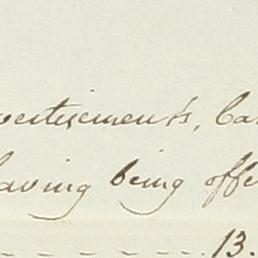 vertisements, Ca
having being offe
13.